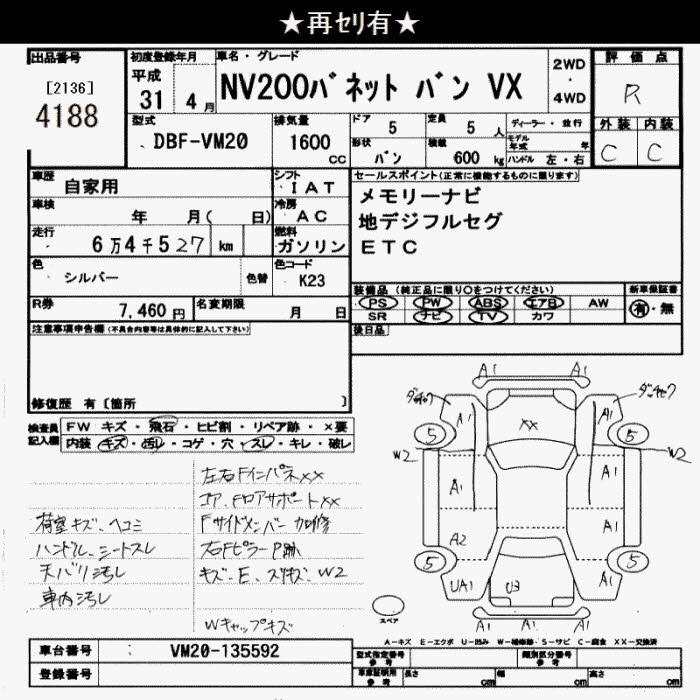 ★再セリ有★
出品番号
[2136]
4188
初度登録年月
平成
31年 4月
車名・グレード
NV200バネット バン VX
2WD
・
4WD
評価点
R
外装 内装
C C
型式
DBF-VM20
排気量
1600
cc
ドア
5
定員
5 人
形状
バン
積載
600 kg
ディーラー・並行
モデル
年式 年
ハンドル 左・右
車歴
自家用
シフト
IAT
車検
年 月( 日)
冷房
AC
走行
6万4千527 km
燃料
ガソリン
色
シルバー
色替
色コード
K23
R券
7,460円
名変期限
月 日
セールスポイント(正常に機能するものに限ります)
メモリーナビ
地デジフルセグ
ETC
装備品 (純正品に限り○をつけてください)
PS PW ABS エアB AW
SR ナビ TV カワ
新車保証書
有・無
後日品
注意事項申告欄(不具合内容等は具体的に記入して下さい)
修復歴 有〔箇所 〕
検査員
記入欄
FW キズ・飛石・ヒビ割・リペア跡・×要
内装 キズ・汚レ・コゲ・穴・スレ・キレ・破レ
左右FインパネXX
コア、FロアサポートXX
荷室キズ、ヘコミ
Fサイドメンバー加修
ハンドル、シートスレ
右FピラーP跡
天バリ汚レ
キズ・E、スリキズ、W2
車内汚レ
Wキャップキズ
A1 A1
A1 XX A1
5 5
W2 W2
A1 A1
A2 A1
5 5
UA1 U3 A1
A1 A1
スペア
A-キズ E-エクボ U-凹み W-補修跡 S-サビ C-腐食 XX-交換済
車台番号
VM20-135592
登録番号
型式指定番号
参考
類別区分番号
参考
車庫証明用
参考
長さ cm
幅 cm
高さ cm